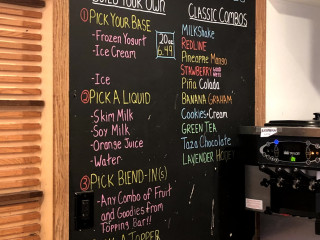 BUILD YOUR OWN
① PICK YOUR BASE
- Frozen Yogurt
- Ice Cream
20 oz
6.49
- Ice
② PICK A LIQUID
- Skim Milk
- Soy Milk
- Orange Juice
- Water
③ PICK BLEND-IN(s)
- Any Combo of Fruit
and Goodies from
Topping Bar!!
CLASSIC COMBOS
MILKSHAKE
REDLINE
Pineapple Mango
STRAWBERRY
Piña Colada
BANANA GRAHAM
Cookies + Cream
GREEN TEA
Taza Chocolate
LAVENDER HONEY